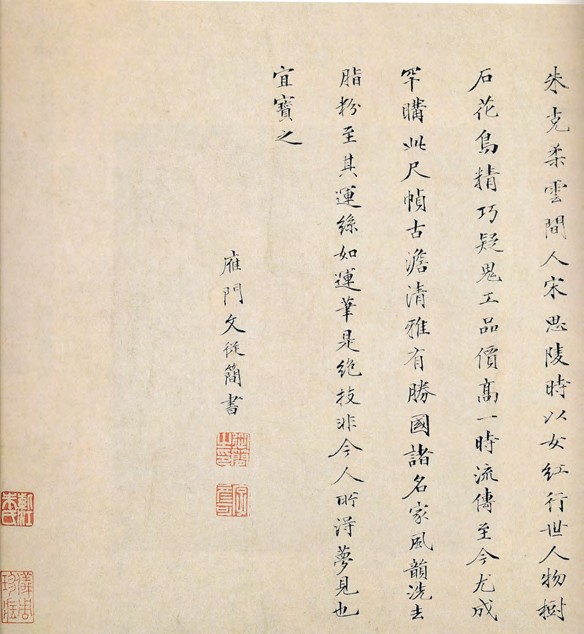 朱克柔雲間人宋思陵時以女紅行世人物樹
石花鳥精巧疑鬼工品價高一時流傳至今尤成
罕購此尺幀古澹清雅有勝國諸名家風韻洗去
脂粉至其運絲如運筆是絕技非今人所得夢見也
宜寶之
雁門文從簡書